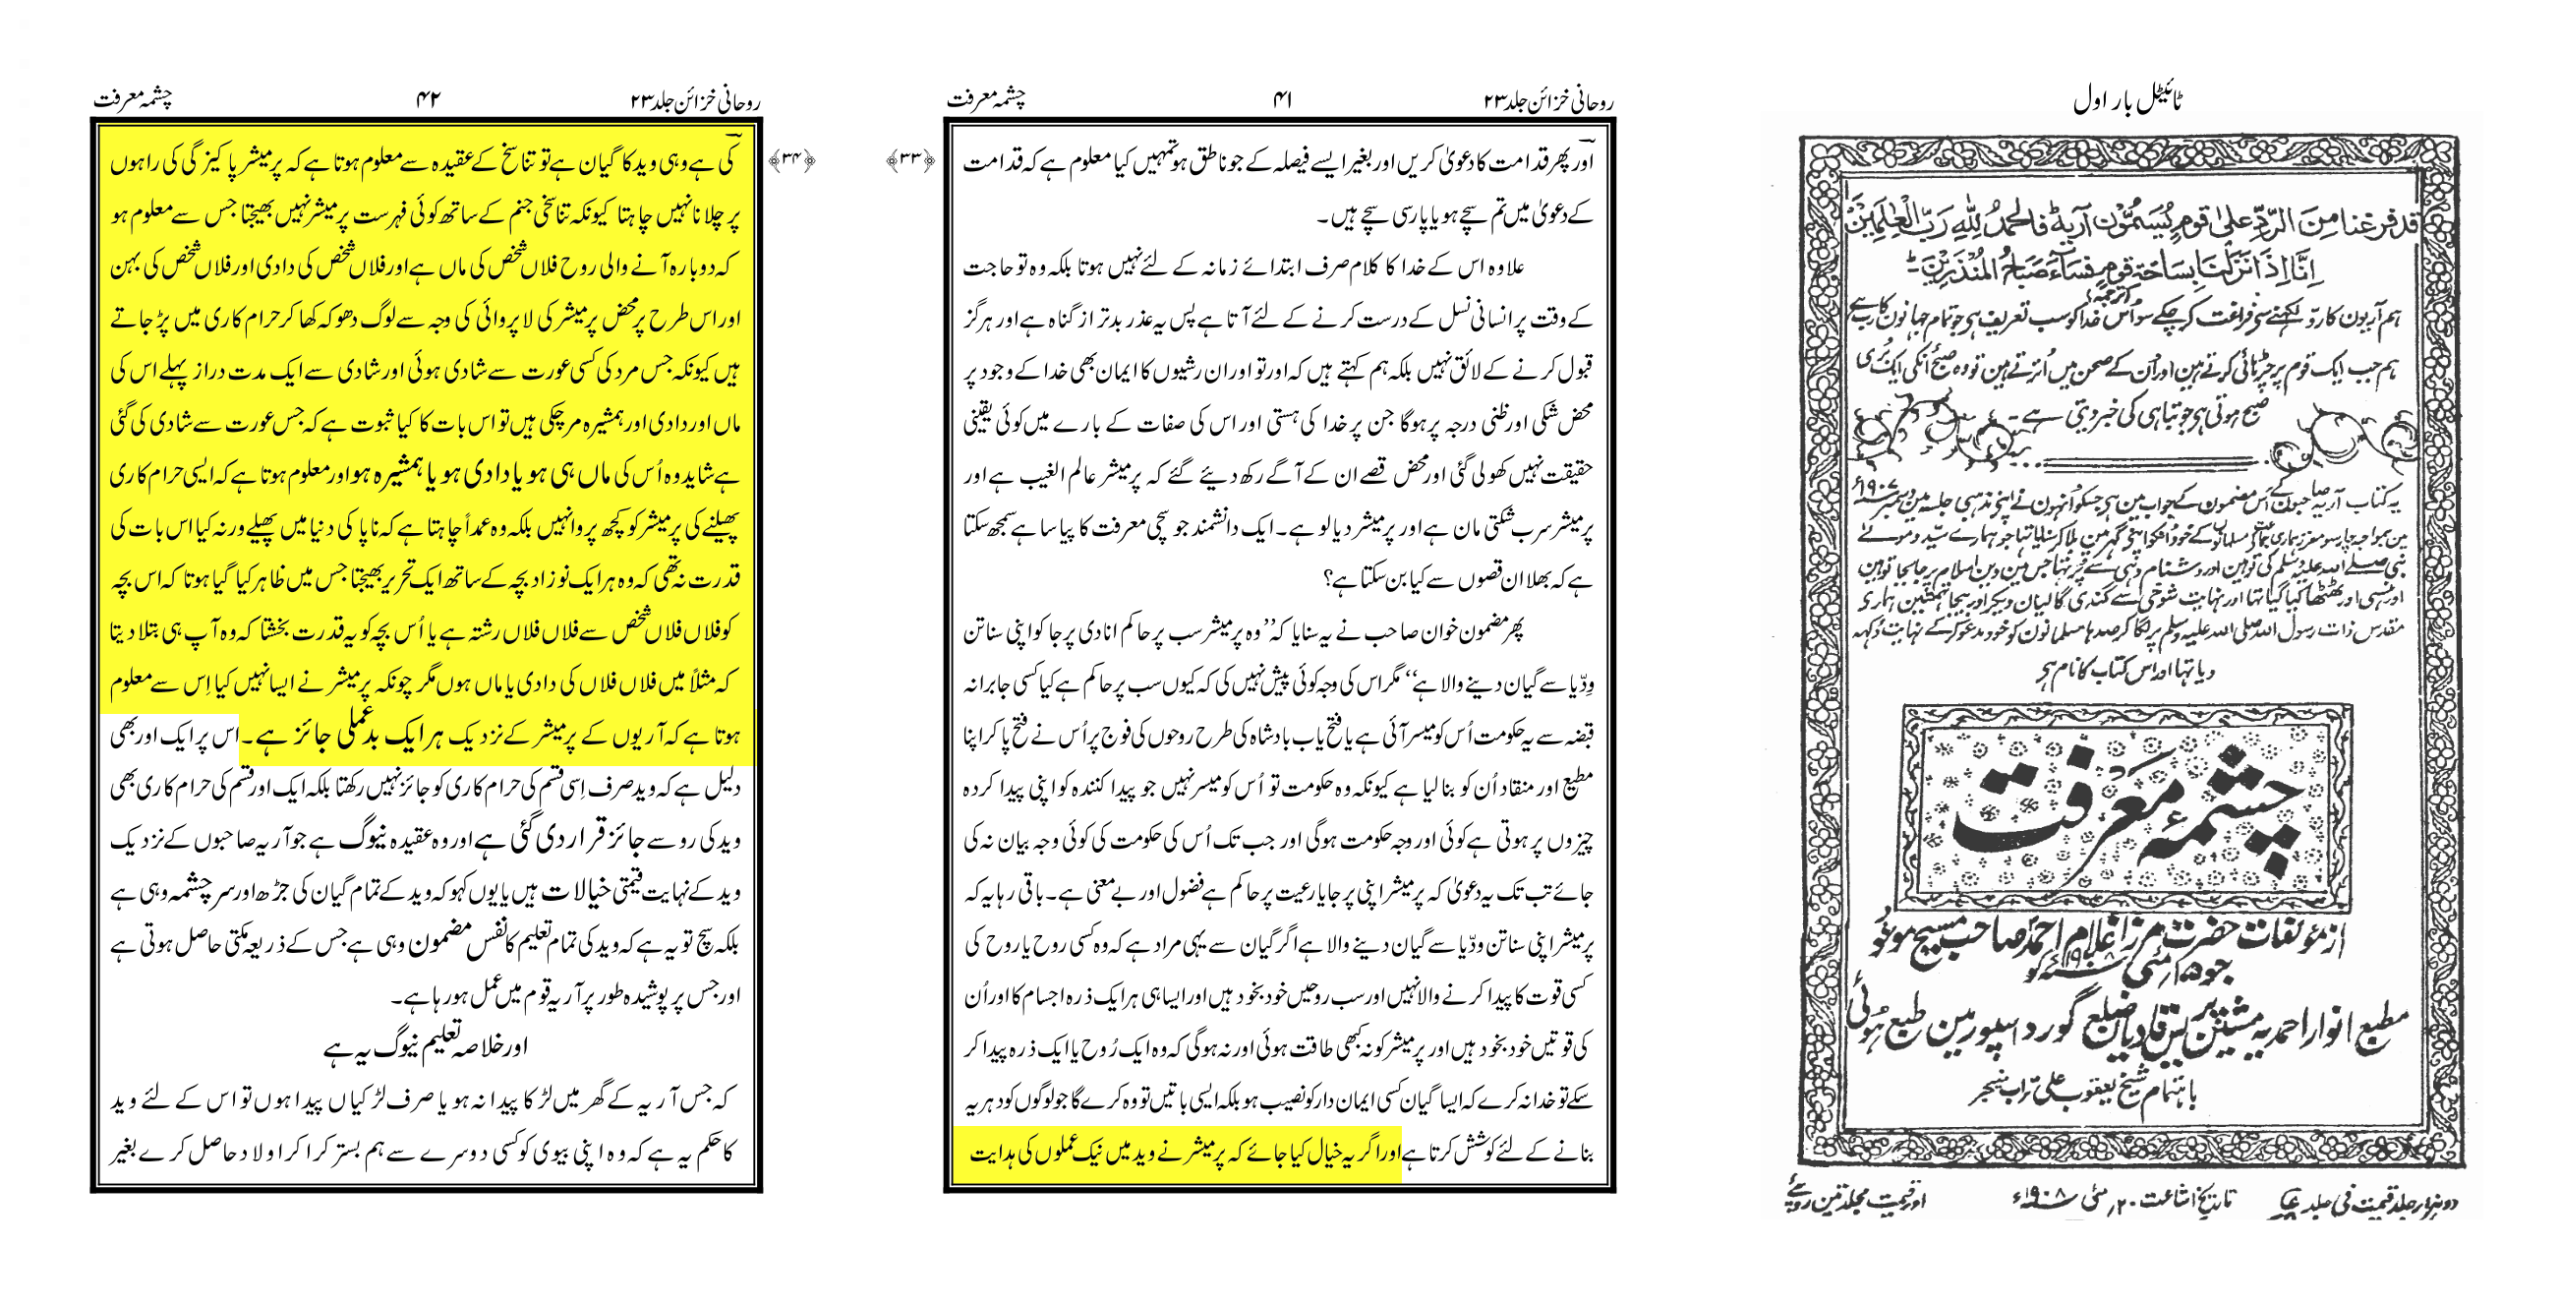 ٹائیٹل بار اول
قد فرغنا من الرّدِّ علیٰ قومٍ یُسَمُّوْن آریة فالحمدُ لِلّٰهِ رَبِّ الْعٰلَمِیْنَ
اِنَّا اِذَا نَزَلْنَا بِسَاحَةِ قومٍ فَسَآءَ صَبَاحُ الْمُنْذَرِیْنَ۔
ترجمہ
ہم آریون کا ردّ لکھنے سے فراغت کر چکے سو اُس خدا کو سب تعریف ہی جو تمام جہانون کا رب ہے
ہم جب ایک قوم پر چڑہائی کرتے ہین اور اُن کے صحن میں اُترتے ہین تو وہ صبح اُنکی ایک بُری
صبح ہوتی ہی جو تباہی کی خبر دیتی ہے۔
یہ کتاب آریہ صاحبون کے اُس مضمون کے جواب مین ہی جسکو اُنہون نے اپنی مذہبی جلسہ مین دسمبر ۱۹۰۷ء
مین بمواجہ چارسو معزز ہماری جماعت کے مسلمانوں کے خود اُنکو اپنی گھر مین بلا کر سنایا تہا جو ہمارے سیّد و مولےٰ
نبی صلے اللہ علیہ وسلم کی توہین اور دشنام دہی سے پُر تہا جس مین دین اسلام پر جا بجا توہین
اور ہنسی اور ٹھٹھا کیا گیا تہا اور نہایت شوخی سے گندی گالیان دیکر اور بیجا تہمتین ہماری
مقدس ذات رسول اللہ صلی اللہ علیہ وسلم پر لگا کر صدہا مسلمانون کو خود مدعو کر کے نہایت دُکہہ
دیا تہا اور اس کتاب کا نام ہی
چشمۂ معرفت
از مؤلفات حضرت مرزا غلام احمد صاحب مسیح موعود
جو ۱۵؍ مئی ۱۹۰۸ء کو
مطبع انوار احمدیہ مشین پریس قادیان ضلع گورداسپور مین طبع ہوئی
باہتمام شیخ یعقوب علی تراب منیجر
تاریخ اشاعت ۲۰؍ مئی ۱۹۰۸ء
اور قیمت مجلد تین روپیے
روحانی خزائن جلد ۲۳
۴۱
چشمہ معرفت
﴿۳۳﴾
اور پھر قدامت کا دعویٰ کریں اور بغیر ایسے فیصلہ کے جو ناطق ہو تمہیں کیا معلوم ہے کہ قدامت
کے دعویٰ میں تم سچے ہو یا پارسی سچے ہیں۔
علاوہ اس کے خدا کا کلام صرف ابتدائے زمانہ کے لئے نہیں ہوتا بلکہ وہ تو حاجت
کے وقت پر انسانی نسل کے درست کرنے کے لئے آتا ہے پس یہ عذر بدتر از گناہ ہے اور ہرگز
قبول کرنے کے لائق نہیں بلکہ ہم کہتے ہیں کہ اور تو اور ان رشیوں کا ایمان بھی خدا کے وجود پر
محض شکی اور ظنی درجہ پر ہوگا جن پر خدا کی ہستی اور اس کی صفات کے بارے میں کوئی یقینی
حقیقت نہیں کھولی گئی اور محض قصے ان کے آگے رکھ دیئے گئے کہ پرمیشر عالم الغیب ہے اور
پرمیشر سرب شکتی مان ہے اور پرمیشر دیالو ہے۔ ایک دانشمند جو سچی معرفت کا پیاسا ہے سمجھ سکتا
ہے کہ بھلا ان قصوں سے کیا بن سکتا ہے؟
پھر مضمون خوان صاحب نے یہ سنایا کہ ”وہ پرمیشر سب پر حاکم انادی پرجا کو اپنی سناتن
وِدّیا سے گیان دینے والا ہے“ مگر اس کی وجہ کوئی پیش نہیں کی کہ کیوں سب پر حاکم ہے کیا کسی جابرانہ
قبضہ سے یہ حکومت اُس کو میسر آئی ہے یا فتح یاب بادشاہ کی طرح روحوں کی فوج پر اُس نے فتح پا کر اپنا
مطیع اور منقاد اُن کو بنالیا ہے کیونکہ وہ حکومت تو اُس کو میسر نہیں جو پیدا کنندہ کو اپنی پیدا کردہ
چیزوں پر ہوتی ہے کوئی اور وجہ حکومت ہوگی اور جب تک اُس کی حکومت کی کوئی وجہ بیان نہ کی
جائے تب تک یہ دعویٰ کہ پرمیشر اپنی پرجا یا رعیت پر حاکم ہے فضول اور بے معنی ہے۔ باقی رہا یہ کہ
پرمیشر اپنی سناتن ودّیا سے گیان دینے والا ہے اگر گیان سے یہی مراد ہے کہ وہ کسی روح یا روح کی
کسی قوت کا پیدا کرنے والا نہیں اور سب روحیں خود بخود ہیں اور ایسا ہی ہر ایک ذرہ اجسام کا اور اُن
کی قوتیں خود بخود ہیں اور پرمیشر کو نہ کبھی طاقت ہوئی اور نہ ہوگی کہ وہ ایک رُوح یا ایک ذرہ پیدا کر
سکے تو خدا نہ کرے کہ ایسا گیان کسی ایمان دار کو نصیب ہو بلکہ ایسی باتیں تو وہ کرے گا جو لوگوں کو دہریہ
بنانے کے لئے کوشش کرتا ہے اور اگر یہ خیال کیا جائے کہ پرمیشر نے وید میں نیک عملوں کی ہدایت
روحانی خزائن جلد ۲۳
۴۲
چشمہ معرفت
﴿۳۴﴾
کی ہے وہی وید کا گیان ہے تو تناسخ کے عقیدہ سے معلوم ہوتا ہے کہ پرمیشر پاکیزگی کی راہوں
پر چلانا نہیں چاہتا کیونکہ تناسخی جنم کے ساتھ کوئی فہرست پرمیشر نہیں بھیجتا جس سے معلوم ہو
کہ دوبارہ آنے والی روح فلاں شخص کی ماں ہے اور فلاں شخص کی دادی اور فلاں شخص کی بہن
اور اس طرح پر محض پرمیشر کی لا پروائی کی وجہ سے لوگ دھوکہ کھا کر حرام کاری میں پڑ جاتے
ہیں کیونکہ جس مرد کی کسی عورت سے شادی ہوئی اور شادی سے ایک مدت دراز پہلے اس کی
ماں اور دادی اور ہمشیرہ مر چکی ہیں تو اس بات کا کیا ثبوت ہے کہ جس عورت سے شادی کی گئی
ہے شاید وہ اُس کی ماں ہی ہو یا دادی ہو یا ہمشیرہ ہو اور معلوم ہوتا ہے کہ ایسی حرام کاری
پھیلنے کی پرمیشر کو کچھ پروا نہیں بلکہ وہ عمداً چاہتا ہے کہ ناپاکی دنیا میں پھیلے ورنہ کیا اس بات کی
قدرت نہ تھی کہ وہ ہر ایک نوزاد بچہ کے ساتھ ایک تحریر بھیجتا جس میں ظاہر کیا گیا ہوتا کہ اس بچہ
کو فلاں فلاں شخص سے فلاں فلاں رشتہ ہے یا اُس بچہ کو یہ قدرت بخشتا کہ وہ آپ ہی بتلا دیتا
کہ مثلاً میں فلاں فلاں کی دادی یا ماں ہوں مگر چونکہ پرمیشر نے ایسا نہیں کیا اِس سے معلوم
ہوتا ہے کہ آریوں کے پرمیشر کے نزدیک ہر ایک بدعملی جائز ہے۔ اس پر ایک اور بھی
دلیل ہے کہ وید صرف اِسی قسم کی حرام کاری کو جائز نہیں رکھتا بلکہ ایک اور قسم کی حرام کاری بھی
وید کی رو سے جائز قرار دی گئی ہے اور وہ عقیدہ نیوگ ہے جو آریہ صاحبوں کے نزدیک
وید کے نہایت قیمتی خیالات ہیں یا یوں کہو کہ وید کے تمام گیان کی جڑھ اور سرچشمہ وہی ہے
بلکہ سچ تو یہ ہے کہ وید کی تمام تعلیم کا نفس مضمون وہی ہے جس کے ذریعہ مکتی حاصل ہوتی ہے
اور جس پر پوشیدہ طور پر آریہ قوم میں عمل ہورہا ہے۔
اور خلاصہ تعلیم نیوگ یہ ہے
کہ جس آریہ کے گھر میں لڑکا پیدا نہ ہو یا صرف لڑکیاں پیدا ہوں تو اس کے لئے وید
کا حکم یہ ہے کہ وہ اپنی بیوی کو کسی دوسرے سے ہم بستر کرا کر اولاد حاصل کرے بغیر